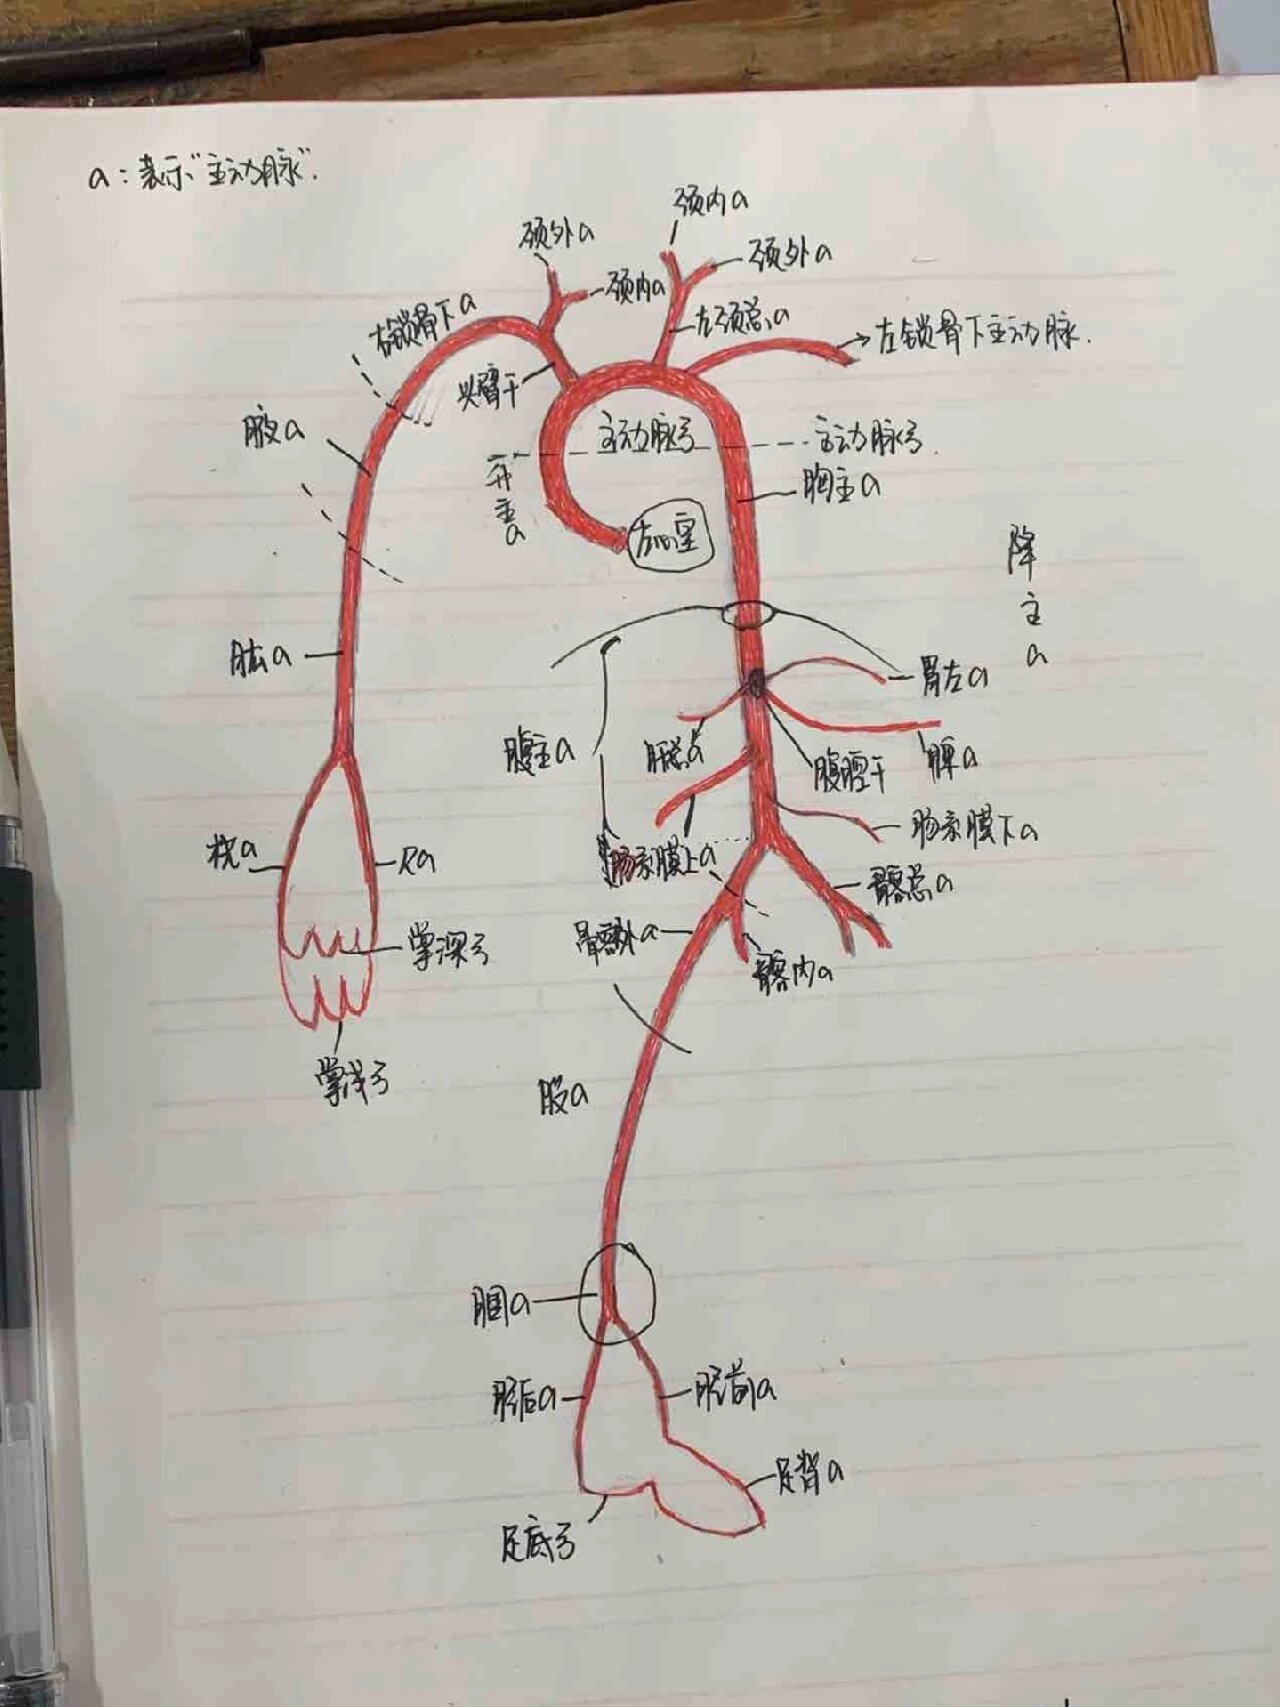 a：表示"主动脉".
颈内a
颈外a
颈外a
颈内a
右锁骨下a
左颈总a
左锁骨下主动脉.
头臂干
腋a
主动脉弓
主动脉弓.
升主a
胸主a
左心室
降主a
肱a
胃左a
腹主a
肝总a
腹腔干
脾a
肠系膜下a
桡a
尺a
肠系膜上a
髂总a
掌深弓
髂外a
髂内a
掌浅弓
股a
腘a
胫后a
胫前a
足背a
足底弓